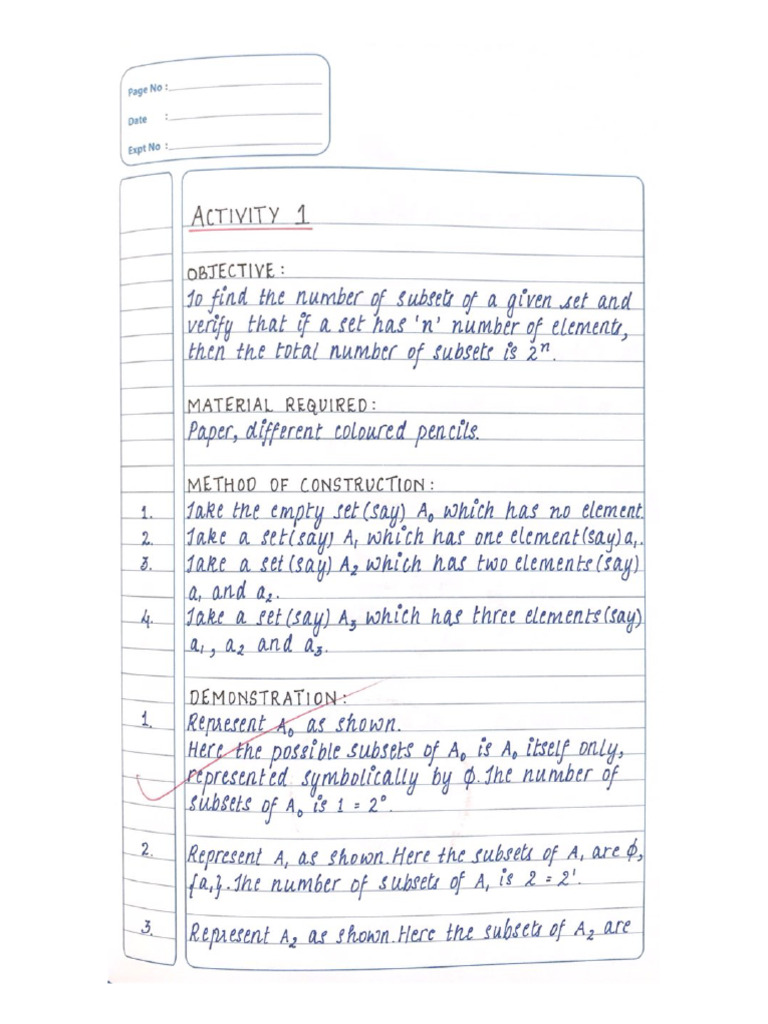 Page No :
Date :
Expt No :
ACTIVITY 1
OBJECTIVE :
To find the number of subsets of a given set and
verify that if a set has 'n' number of elements,
then the total number of subsets is 2ⁿ.
MATERIAL REQUIRED :
Paper, different coloured pencils.
METHOD OF CONSTRUCTION :
1. Take the empty set (say) A₀ which has no element.
2. Take a set (say) A₁ which has one element (say) a₁.
3. Take a set (say) A₂ which has two elements (say)
a₁ and a₂.
4. Take a set (say) A₃ which has three elements (say)
a₁, a₂ and a₃.
DEMONSTRATION :
1. Represent A₀ as shown.
Here the possible subsets of A₀ is A₀ itself only,
represented symbolically by ϕ. The number of
subsets of A₀ is 1 = 2⁰.
2. Represent A₁ as shown. Here the subsets of A₁ are ϕ,
{a₁}. The number of subsets of A₁ is 2 = 2¹.
3. Represent A₂ as shown. Here the subsets of A₂ are